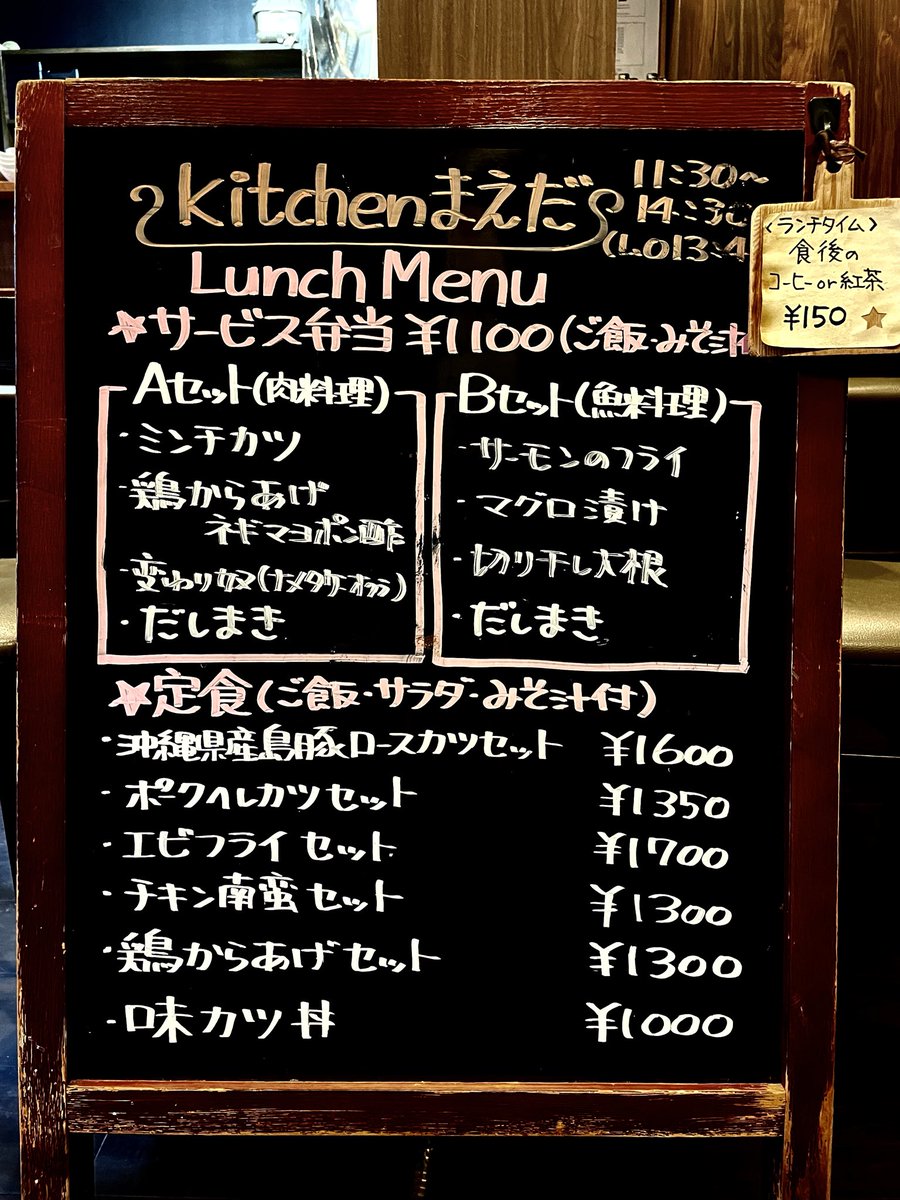 Kitchenまえだ
11:30~
14:30
(L.O13:4
Lunch Menu
〈ランチタイム〉
食後の
コーヒーor紅茶
¥150
サービス弁当 ¥1100(ご飯・みそ汁
Aセット(肉料理)
・ミンチカツ
・鶏からあげ
ネギマヨポン酢
・変わり奴(ナメタケオカラ)
・だしまき
Bセット(魚料理)
・サーモンのフライ
・マグロ漬け
・切り干し大根
・だしまき
定食(ご飯・サラダ・みそ汁付)
・沖縄県産島豚ロースカツセット ¥1600
・ポークヘレカツセット ¥1350
・エビフライセット ¥1700
・チキン南蛮セット ¥1300
・鶏からあげセット ¥1300
・味カツ丼 ¥1000